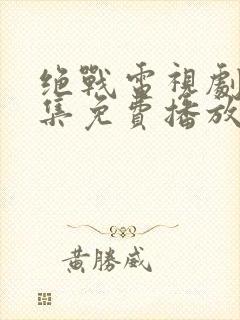 绝戰雷視劇
集免費播放
黃勝威